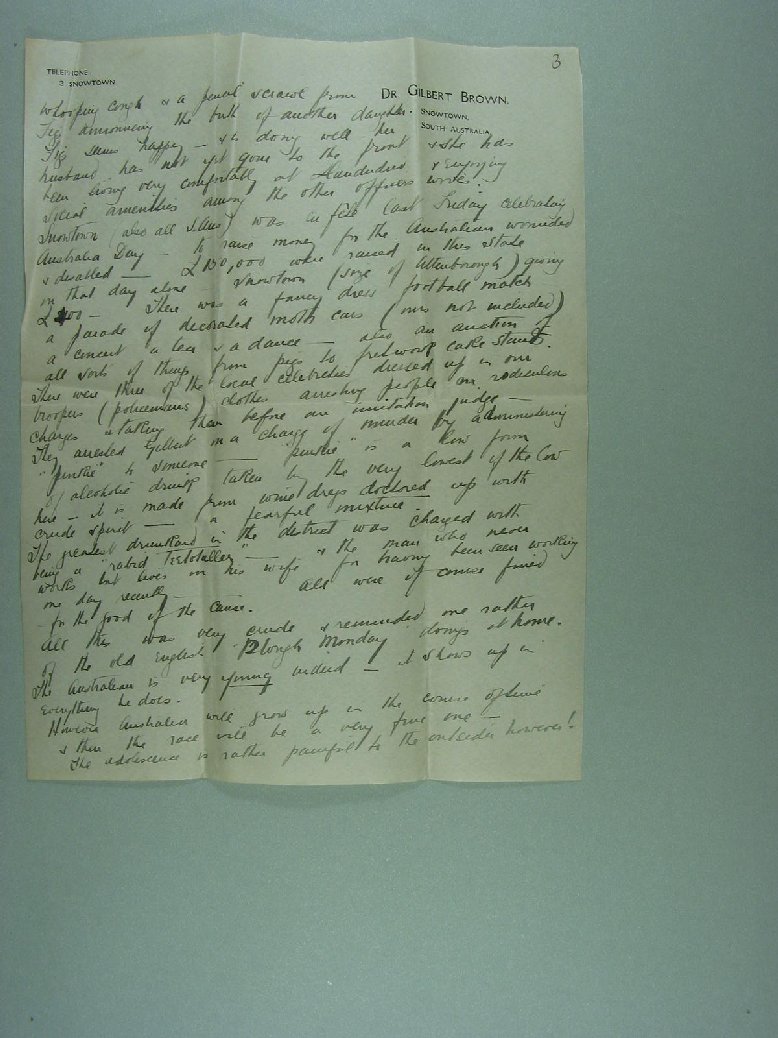 3
TELEPHONE
3 SNOWTOWN
DR GILBERT BROWN.
SNOWTOWN,
SOUTH AUSTRALIA
whooping cough & a pencil scrawl from
Fig announcing the birth of another daughter.
Fig seems happy – & is doing well her
husband has not yet gone to the front & she has
been living very comfortably at & enjoying
great amenities among the other officers wives!
Snowtown (also all S. Aus) was en fête last Friday celebrating
Australia Day – to raise money for the Australian wounded
& disabled – £130,000 were raised in this State
on that day alone – Snowtown (size of Attenborough) giving
£ 00 – There was a fancy dress football match
a parade of decorated motor cars (ours not included)
a concert a tea & a dance – also an auction of
all sorts of things from pigs to fretwork cake stands.
There were three of the local celebrities dressed up in our
troopers (policemans) clothes arresting people on rediculous
charges & taking them before an imitation judge –
They arrested Gilbert on a charge of murder by administering
"pinkie" to someone – "pinkie" is a low form
of alcoholic drink taken by the very lowest of the low
here – it is made from wine dregs doctored up with
crude spirit – a fearful mixture
The greatest drunkard in the district was charged with
being a "rabid Teetotaller" – & the man who never
works but lives on his wife for having been seen working
one day recently – All were of course fined
– for the good of the cause.
All this was very crude & reminded one rather
of the old English "Plough Monday" doings at home.
The Australian is very young indeed – it shows up in
everything he does.
However Australia will grow up in the course of time
& then the race will be a very fine one –
The adolescence is rather painful to the outsider however!